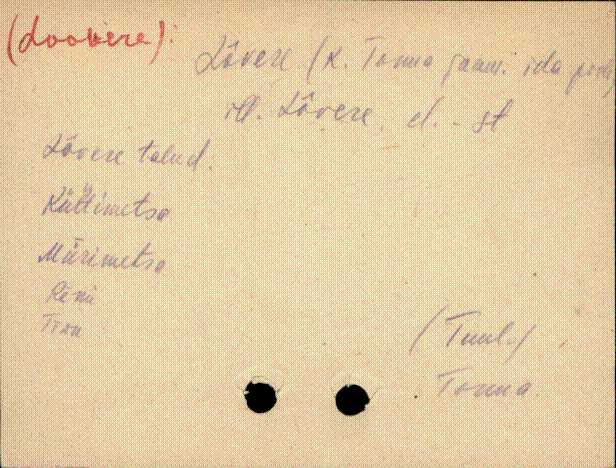 (Loovere):
Lôvere (K. Tonna jaam. ida pool)
ill. Lôvere, el. - st
Lôvere talud.
Küttimetsa
Mürimetsa
(Tuul.)
Tonna.